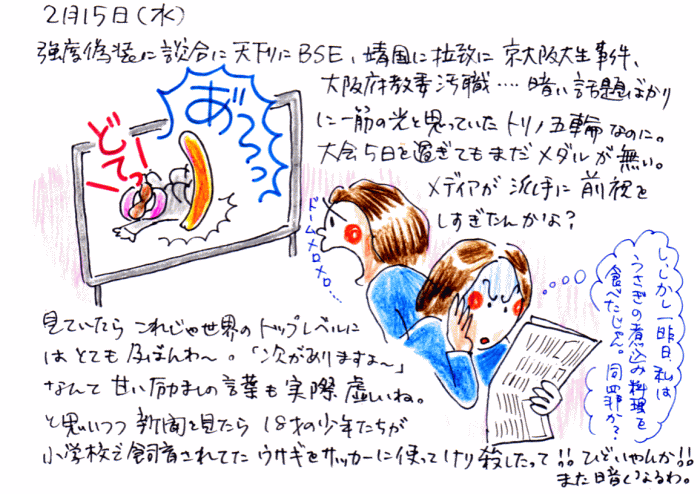 2月15日(水)
強度偽装に談合に天下りにBSE、靖国に拉致に京大阪大生事件、
大阪府教委汚職…暗い話題ばかり
に一筋の光と思っていたトリノ五輪なのに。
大会5日を過ぎてもまだメダルが無い。
メディアが派手に前視を
しすぎたんかな?
あ゛~っっ
どてっー
ドームメロメロ…
し、しかし一昨日、私は
うさぎの煮込み料理を
食べたじゃん。同罪か?
見ていたら これじゃ世界のトップレベルに
は とても 及ばんわ~。「次がありますよ~」
なんて 甘い励ましの言葉も 実際 虚しいね。
と思いつつ 新聞を見たら 18才の少年たちが
小学校で飼育されてた ウサギをサッカーに使ってけり殺したって!! ひどいやんか!!
また暗くなるわ。